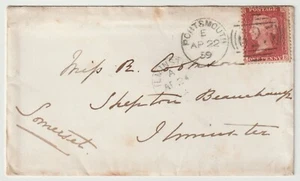 PORTSMOUTH
E
AP 22
59
ONE PENNY
Miss R.
Shepton Beauchamp
Ilminster
Somerset.